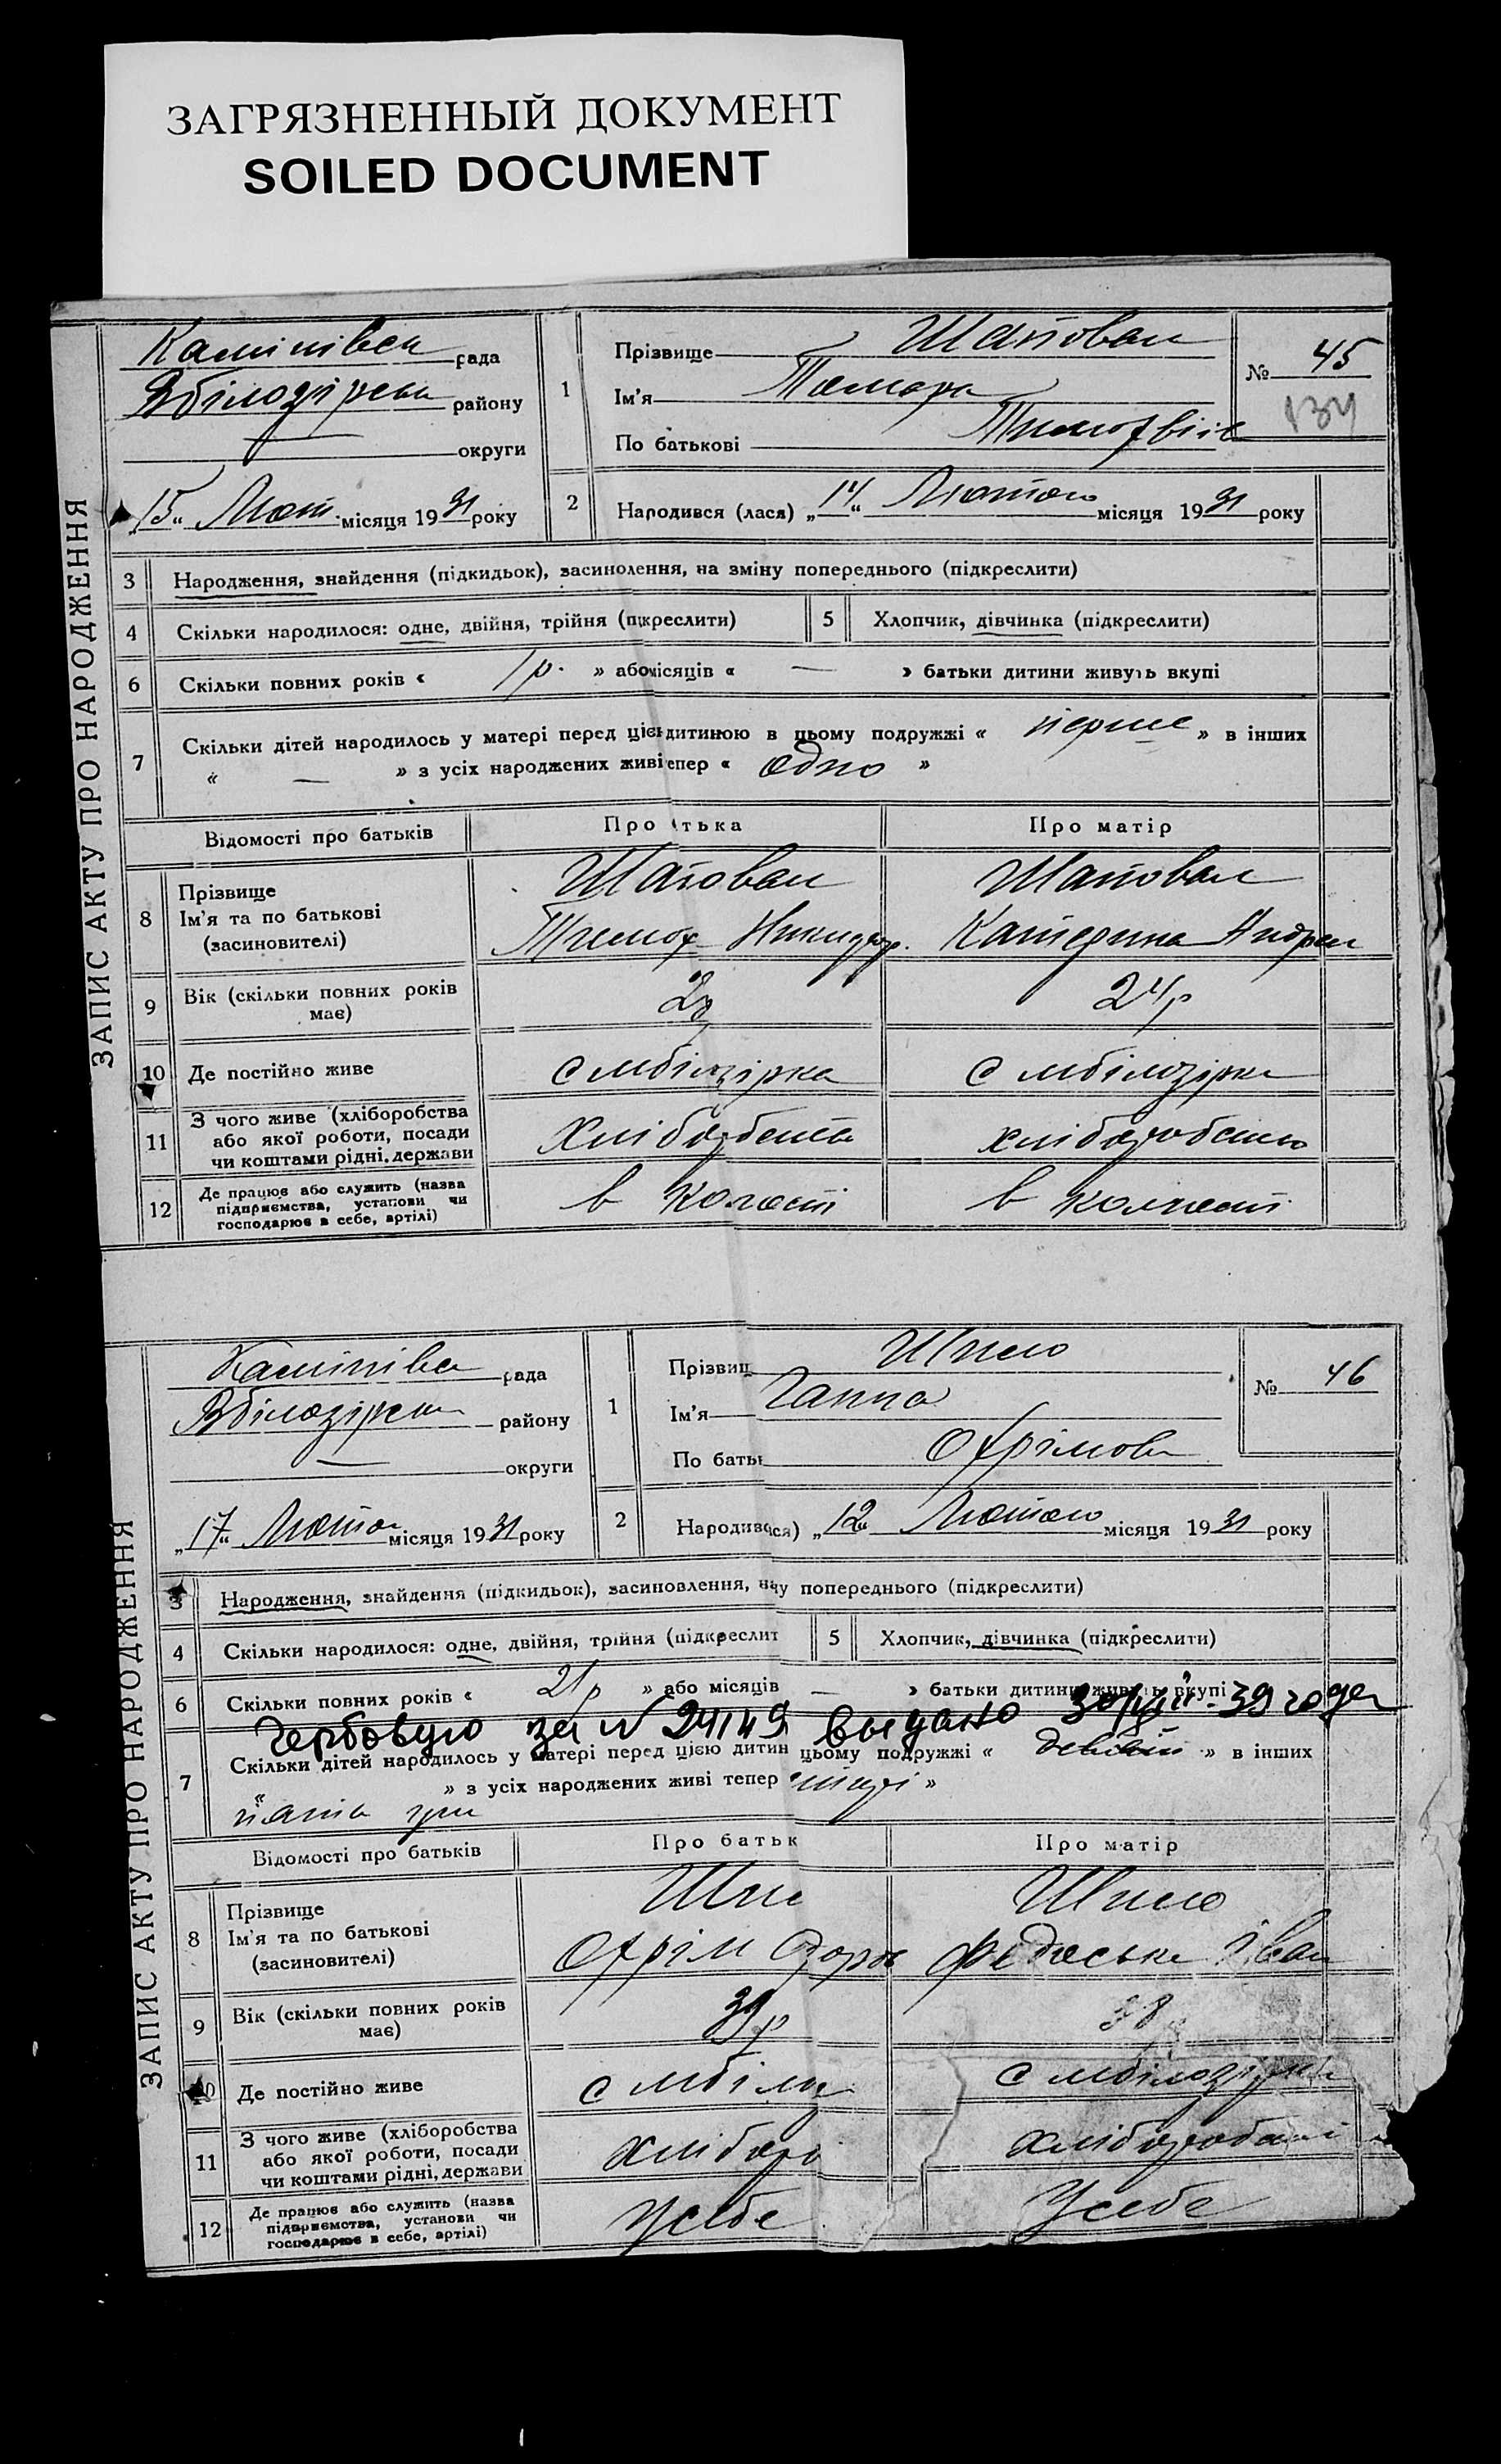 ЗАГРЯЗНЕННЫЙ ДОКУМЕНТ
SOILED DOCUMENT
ЗАПИС АКТУ ПРО НАРОДЖЕННЯ
Калінівськ рада
Вбілозірськ району
округи
„15“ Лют. місяця 1931 року
1
Прізвище Шаповал
Ім'я Тамара
По батькові
№ 45
134
2
Народився (лася) „14“ Лютого місяця 1931 року
3 Народження, знайдення (підкидьок), засинолення, на зміну попереднього (підкреслити)
4 Скільки народилося: одне, двійня, трійня (пікреслити)
5 Хлопчик, дівчинка (підкреслити)
6 Скільки повних років « 1 р. » або місяців « — » батьки дитини живуть вкупі
7 Скільки дітей народилось у матері перед цією дитиною в цьому подружжі « перше » в інших
« — » з усіх народжених живі тепер « одно »
Відомості про батьків
Про тька
Про матір
8 Прізвище
Ім'я та по батькові
(засиновителі)
Шаповал
Тимох
Шаповал
Катерина Андрем
9 Вік (скільки повних років
має)
24 р
10 Де постійно живе
с мбілозірка
с мбілозірка
11 З чого живе (хліборобства
або якої роботи, посади
чи коштами рідні, держави
хліборобство
12 Де працює або служить (назва
підприємства, установи чи
господарює в себе, артілі)
в колгоспі
в колгоспі
ЗАПИС АКТУ ПРО НАРОДЖЕННЯ
Калінівсь рада
Вбілозірськ району
— округи
„17“ Лютого місяця 1931 року
1
Прізвищ Шило
Ім'я Ганна
По баты Охрімовн
№ 46
2
Народивс ся) „12“ Лютого місяця 1931 року
3 Народження, знайдення (підкидьок), засиновлення, на у попереднього (підкреслити)
4 Скільки народилося: одне, двійня, трійня (підкреслит
5 Хлопчик, дівчинка (підкреслити)
6 Скільки повних років « 21 р » або місяців — » батьки дитини живуть вкупі
Гербовую за N 24149 выдано 39 года
7 Скільки дітей народилось у матері перед цією дитин цьому подружжі « » в інших
« » з усіх народжених живі тепер « »
Відомості про батьків
Про батьк
Про матір
8 Прізвище
Ім'я та по батькові
(засиновителі)
Охрім
Шило
Федоська Іван
9 Вік (скільки повних років
має)
39 р
38
10 Де постійно живе
с мбілоз
с мбілозірка
11 З чого живе (хліборобства
або якої роботи, посади
чи коштами рідні, держави
хлібороб
12 Де працює або служить (назва
підприємства, установи чи
господарює в себе, артілі)
Усебе
Усебе